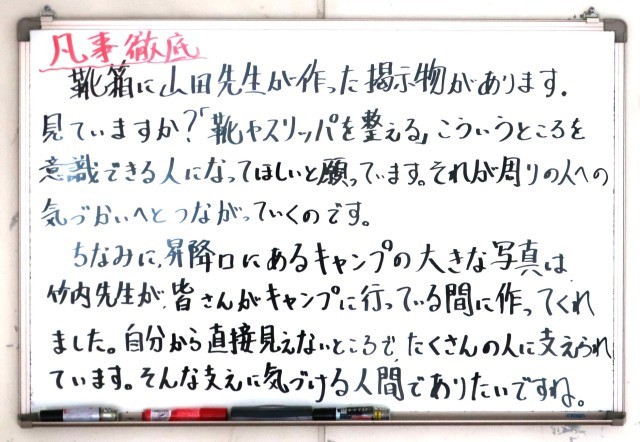 凡事徹底
靴箱に山田先生が作った掲示物があります。
見ていますか?「靴やスリッパを整える」こういうところを
意識できる人になってほしいと願っています。それが周りの人への
気づかいへとつながっていくのです。
ちなみに、昇降口にあるキャンプの大きな写真は、
竹内先生が、皆さんがキャンプに行っている間に作ってくれ
ました。自分から直接見えないところで、たくさんの人に支えられ
ています。そんな支えに気づける人間でありたいですね。